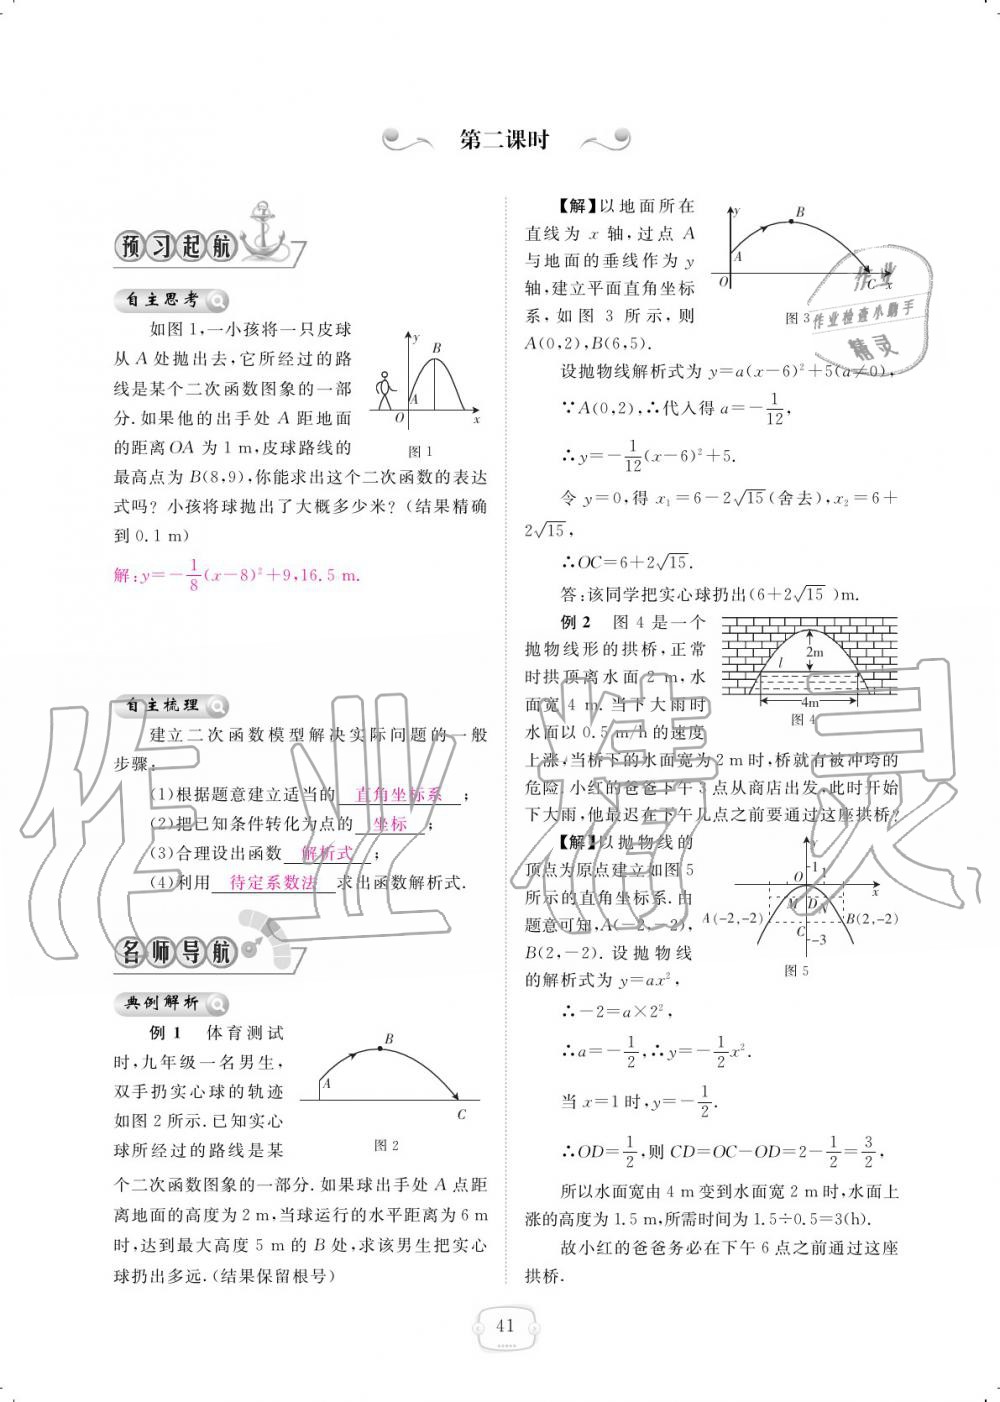 第二课时
预习起航
自主思考
如图 1,一小孩将一只皮球
从 A 处抛出去,它所经过的路
线是某个二次函数图象的一部
分.如果他的出手处 A 距地面
的距离 OA 为 1 m,皮球路线的
最高点为 B(8,9),你能求出这个二次函数的表达
式吗? 小孩将球抛出了大概多少米? (结果精确
到 0.1 m)
y
B
A
O
x
图 1
解:y=-1/8(x-8)²+9,16.5 m.
自主梳理
建立二次函数模型解决实际问题的一般
步骤:
(1)根据题意建立适当的 直角坐标系 ;
(2)把已知条件转化为点的 坐标 ;
(3)合理设出函数 解析式 ;
(4)利用 待定系数法 求出函数解析式.
名师导航
典例解析
例 1 体育测试
时,九年级一名男生,
双手扔实心球的轨迹
如图 2 所示.已知实心
球所经过的路线是某
个二次函数图象的一部分.如果球出手处 A 点距
离地面的高度为 2 m,当球运行的水平距离为 6 m
时,达到最大高度 5 m 的 B 处,求该男生把实心
球扔出多远.(结果保留根号)
B
A
C
图 2
【解】以地面所在
直线为 x 轴,过点 A
与地面的垂线作为 y
轴,建立平面直角坐标
系,如图 3 所示,则
A(0,2),B(6,5).
y
B
A
O
C
x
图 3
设抛物线解析式为 y=a(x-6)²+5(a≠0),
∵A(0,2),∴代入得 a=-1/12,
∴y=-1/12(x-6)²+5.
令 y=0,得 x₁=6-2√15(舍去),x₂=6+
2√15,
∴OC=6+2√15.
答:该同学把实心球扔出(6+2√15 )m.
例 2 图 4 是一个
抛物线形的拱桥,正常
时拱顶离水面 2 m,水
面宽 4 m.当下大雨时
水面以 0.5 m/h 的速度
上涨,当桥下的水面宽为 2 m 时,桥就有被冲垮的
危险.小红的爸爸下午 3 点从商店出发,此时开始
下大雨,他最迟在下午几点之前要通过这座拱桥?
2m
l
4m
图 4
【解】以抛物线的
顶点为原点建立如图 5
所示的直角坐标系.由
题意可知,A(-2,-2),
B(2,-2).设抛物线
的解析式为 y=ax²,
y
O
-1 1
x
M
D
N
A(-2,-2)
B(2,-2)
C
-3
图 5
∴-2=a×2²,
∴a=-1/2,∴y=-1/2x².
当 x=1 时,y=-1/2.
∴OD=1/2,则 CD=OC-OD=2-1/2=3/2,
所以水面宽由 4 m 变到水面宽 2 m 时,水面上
涨的高度为 1.5 m,所需时间为 1.5÷0.5=3(h).
故小红的爸爸务必在下午 6 点之前通过这座
拱桥.
41
作业
作业检查小助手
精灵
作业精灵